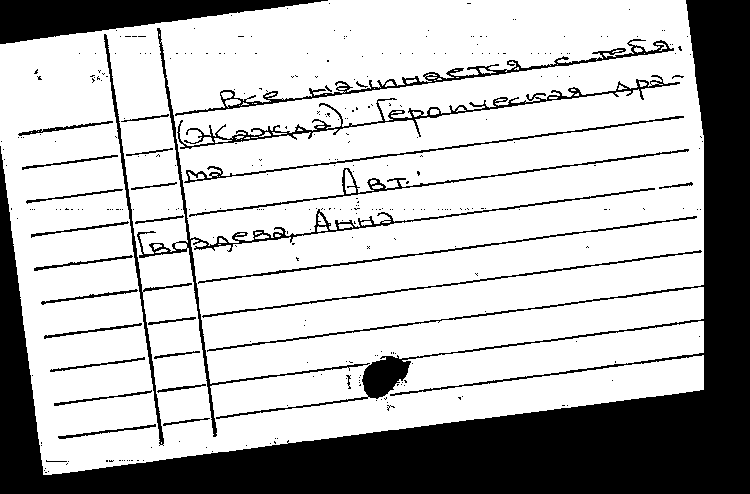 Все начинается с тебя.
(Жажда). Героическая дра-
ма.
Авт.:
Гвоздева, Анна